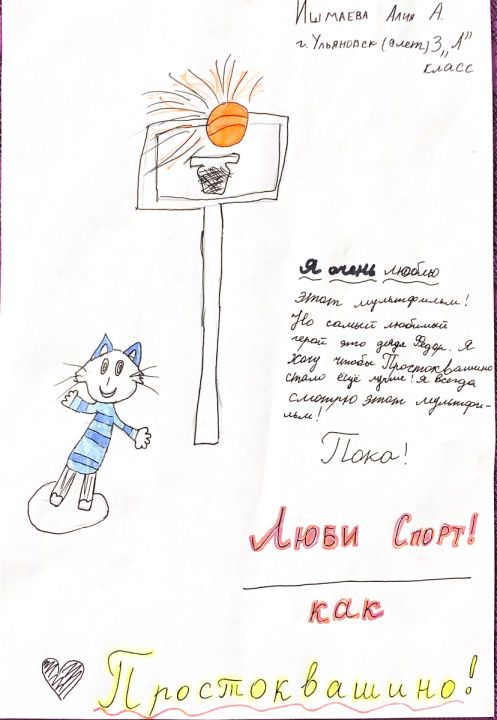 Ишмаева Алия А.
г. Ульяновск (9 лет) 3 „А"
класс
Я очень люблю
этот мультфильм!
Но самый любимый
герой это дядя Фёдор. Я
хочу чтобы Простоквашино
стало ещё лучше! Я всегда
смотрю этот мультфи-
льм!
Пока!
Люби Спорт!
как
Простоквашино!